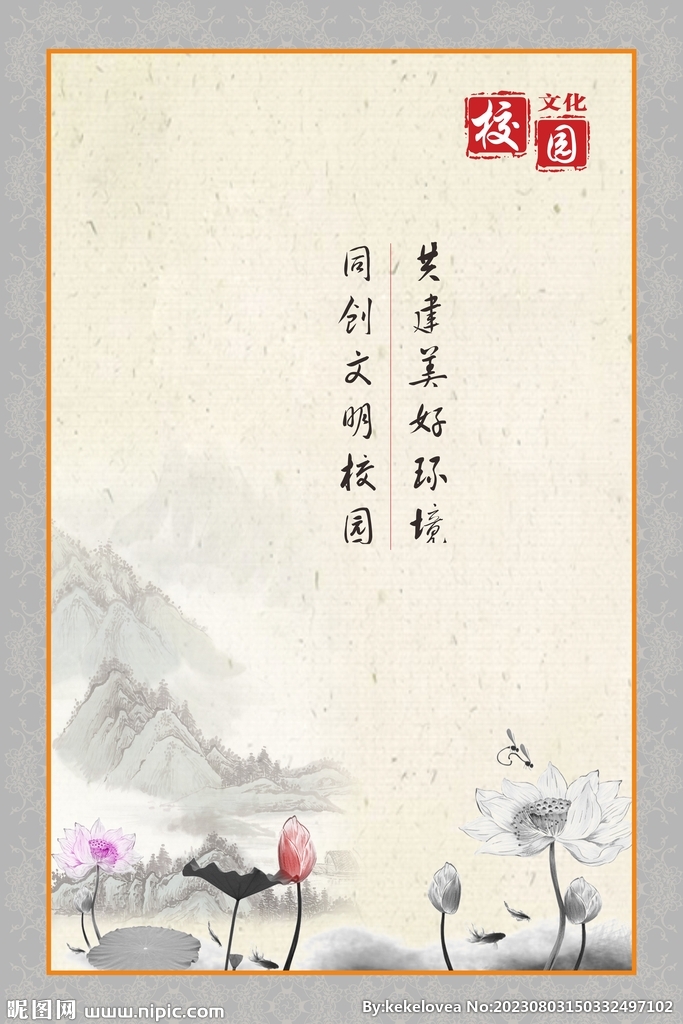 校园
文化
共建美好环境
同创文明校园
昵图网 www.nipic.com
By:kekelovea No:20230803150332497102